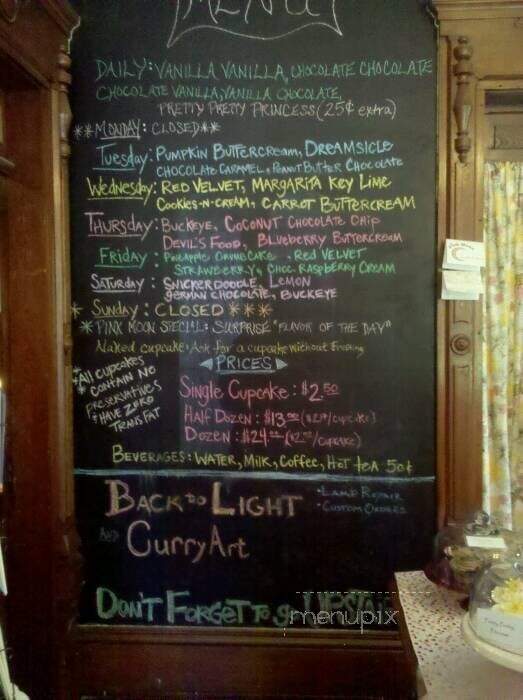 MENU
DAILY: VANILLA VANILLA, CHOCOLATE CHOCOLATE
CHOCOLATE VANILLA, VANILLA CHOCOLATE,
PRETTY PRETTY PRINCESS (25¢ extra)
**MONDAY: CLOSED**
Tuesday: PUMPKIN BUTTERCREAM, DREAMSICLE
CHOCOLATE CARAMEL, PEANUT BUTTER CHOCOLATE
WEDNESDAY: RED VELVET, MARGARITA KEY LIME
COOKIES-N-CREAM, CARROT BUTTERCREAM
THURSDAY: BUCKEYE, COCONUT CHOCOLATE CHIP
DEVIL'S FOOD, BLUEBERRY BUTTERCREAM
FRIDAY: PINEAPPLE CREMECAKE, RED VELVET
STRAWBERRY, CHOC RASPBERRY CREAM
SATURDAY: SNICKERDOODLE, LEMON
GERMAN CHOCOLATE, BUCKEYE
* SUNDAY: CLOSED ***
*PINK MOON SPECIAL: SURPRISE "FLAVOR OF THE DAY"
Naked cupcake: Ask for a cupcake without frosting
PRICES
*All cupcakes
*CONTAIN NO
preservatives
*HAVE ZERO
TRANS FAT
Single Cupcake: $2.50
HALF DOZEN: $13.00 (/cupcake)
DOZEN: $24.00 ($2.00/cupcake)
BEVERAGES: WATER, MILK, COFFEE, HOT TEA 50¢
BACK TO LIGHT
AND CurryArt
• LAMP REPAIR
• CUSTOM ORDERS
DON'T FORGET TO go UPSTAIRS
menupix